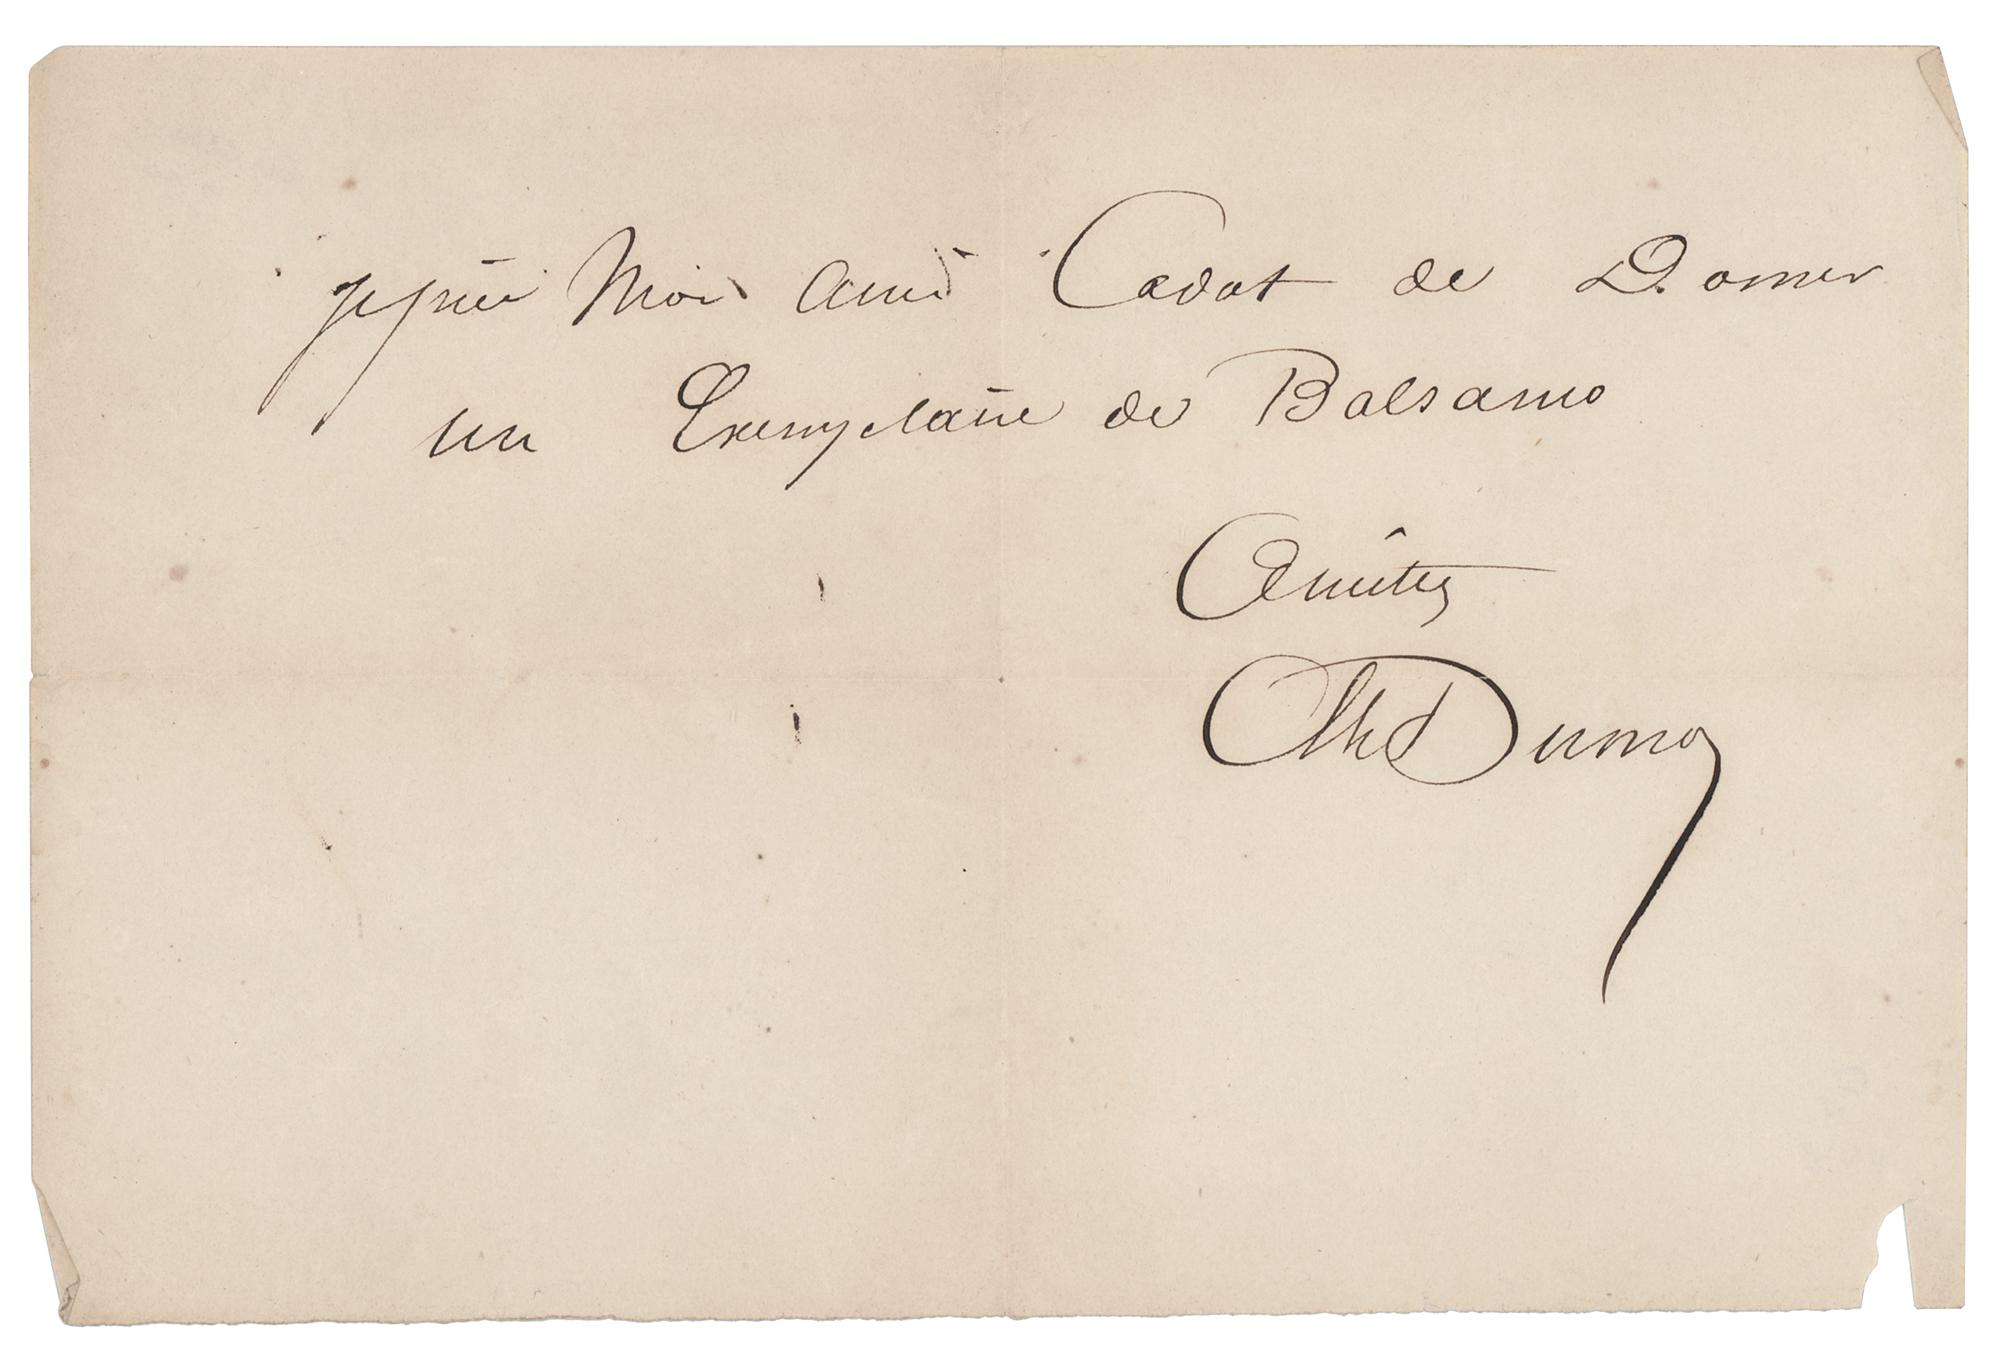 Je prie Mon ami Cadot de Donner
un Exemplaire de Balsamo
Amitiés
Alex Dumas